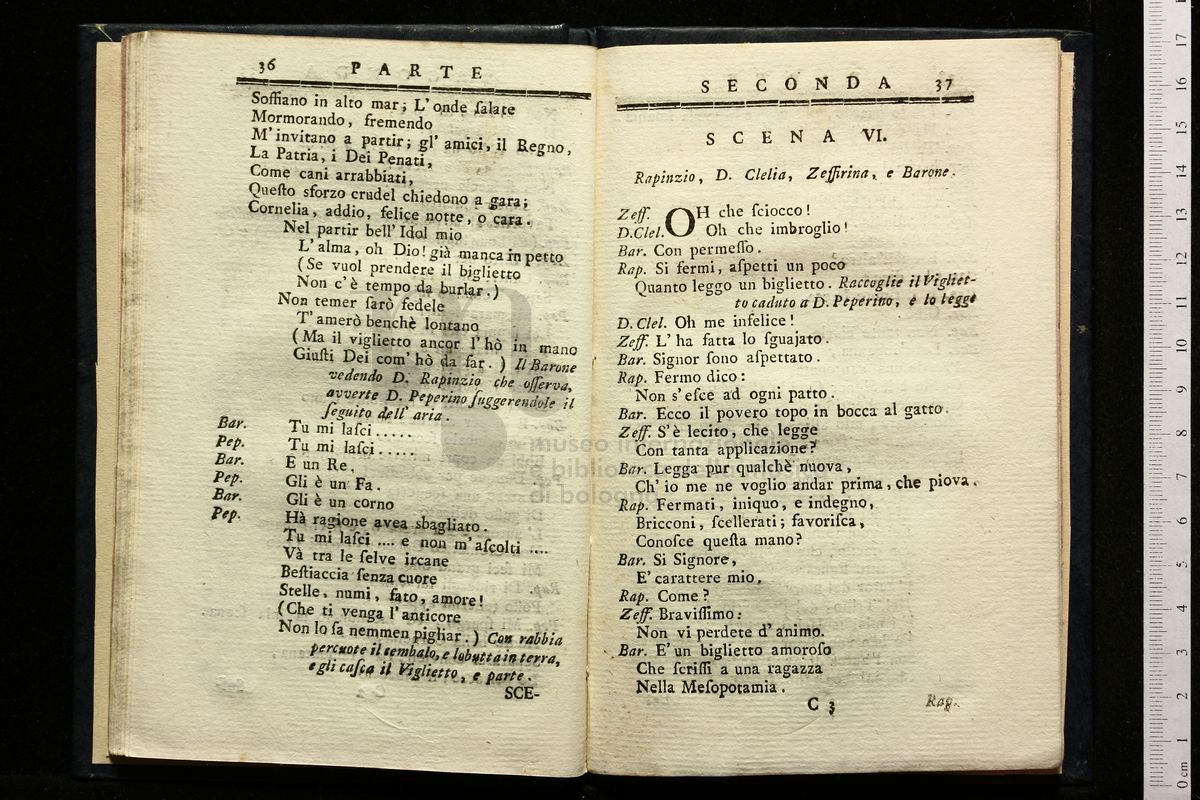 36 PARTE
Soffiano in alto mar; L'onde ſalate
Mormorando, fremendo
M'invitano a partir; gl'amici, il Regno,
La Patria, i Dei Penati,
Come cani arrabbiati,
Queſto sforzo crudel chiedono a gara;
Cornelia, addio, felice notte, o cara.
Nel partir bell'Idol mio
L'alma, oh Dio! già manca in petto
(Se vuol prendere il biglietto
Non c'è tempo da burlar.)
Non temer ſarò fedele
T'amerò benchè lontano
(Ma il viglietto ancor l'hò in mano
Giuſti Dei com'hò da far.) Il Barone
vedendo D. Rapinzio che oſſerva,
avverte D. Peperino ſuggerendole il
ſeguito dell'aria.
Bar. Tu mi laſci.....
Pep. Tu mi laſci.....
Bar. E un Re.
Pep. Gli è un Fa.
Bar. Gli è un corno
Pep. Hà ragione avea sbagliato.
Tu mi laſci .... e non m'aſcolti ....
Và tra le ſelve ircane
Beſtiaccia ſenza cuore
Stelle, numi, fato, amore!
(Che ti venga l'anticore
Non lo ſa nemmen pigliar.) Con rabbia
percuote il cembalo, e lo butta in terra,
e gli caſca il Viglietto, e parte.
SCE-
SECONDA 37
SCENA VI.
Rapinzio, D. Clelia, Zeffirina, e Barone.
Zeff. OH che ſciocco!
D.Clel. Oh che imbroglio!
Bar. Con permeſſo.
Rap. Si fermi, aſpetti un poco
Quanto leggo un biglietto. Raccoglie il Vigliet-
to caduto a D. Peperino, e lo legge
D. Clel. Oh me infelice!
Zeff. L'ha fatta lo ſguajato.
Bar. Signor ſono aſpettato.
Rap. Fermo dico:
Non s'eſce ad ogni patto.
Bar. Ecco il povero topo in bocca al gatto.
Zeff. S'è lecito, che legge
Con tanta applicazione?
Bar. Legga pur qualchè nuova,
Ch'io me ne voglio andar prima, che piova.
Rap. Fermati, iniquo, e indegno,
Bricconi, ſcellerati; favoriſca,
Conoſce queſta mano?
Bar. Si Signore,
E' carattere mio.
Rap. Come?
Zeff. Braviſſimo:
Non vi perdete d'animo.
Bar. E' un biglietto amoroſo
Che ſcriſſi a una ragazza
Nella Meſopotamia.
C 3 Rap.